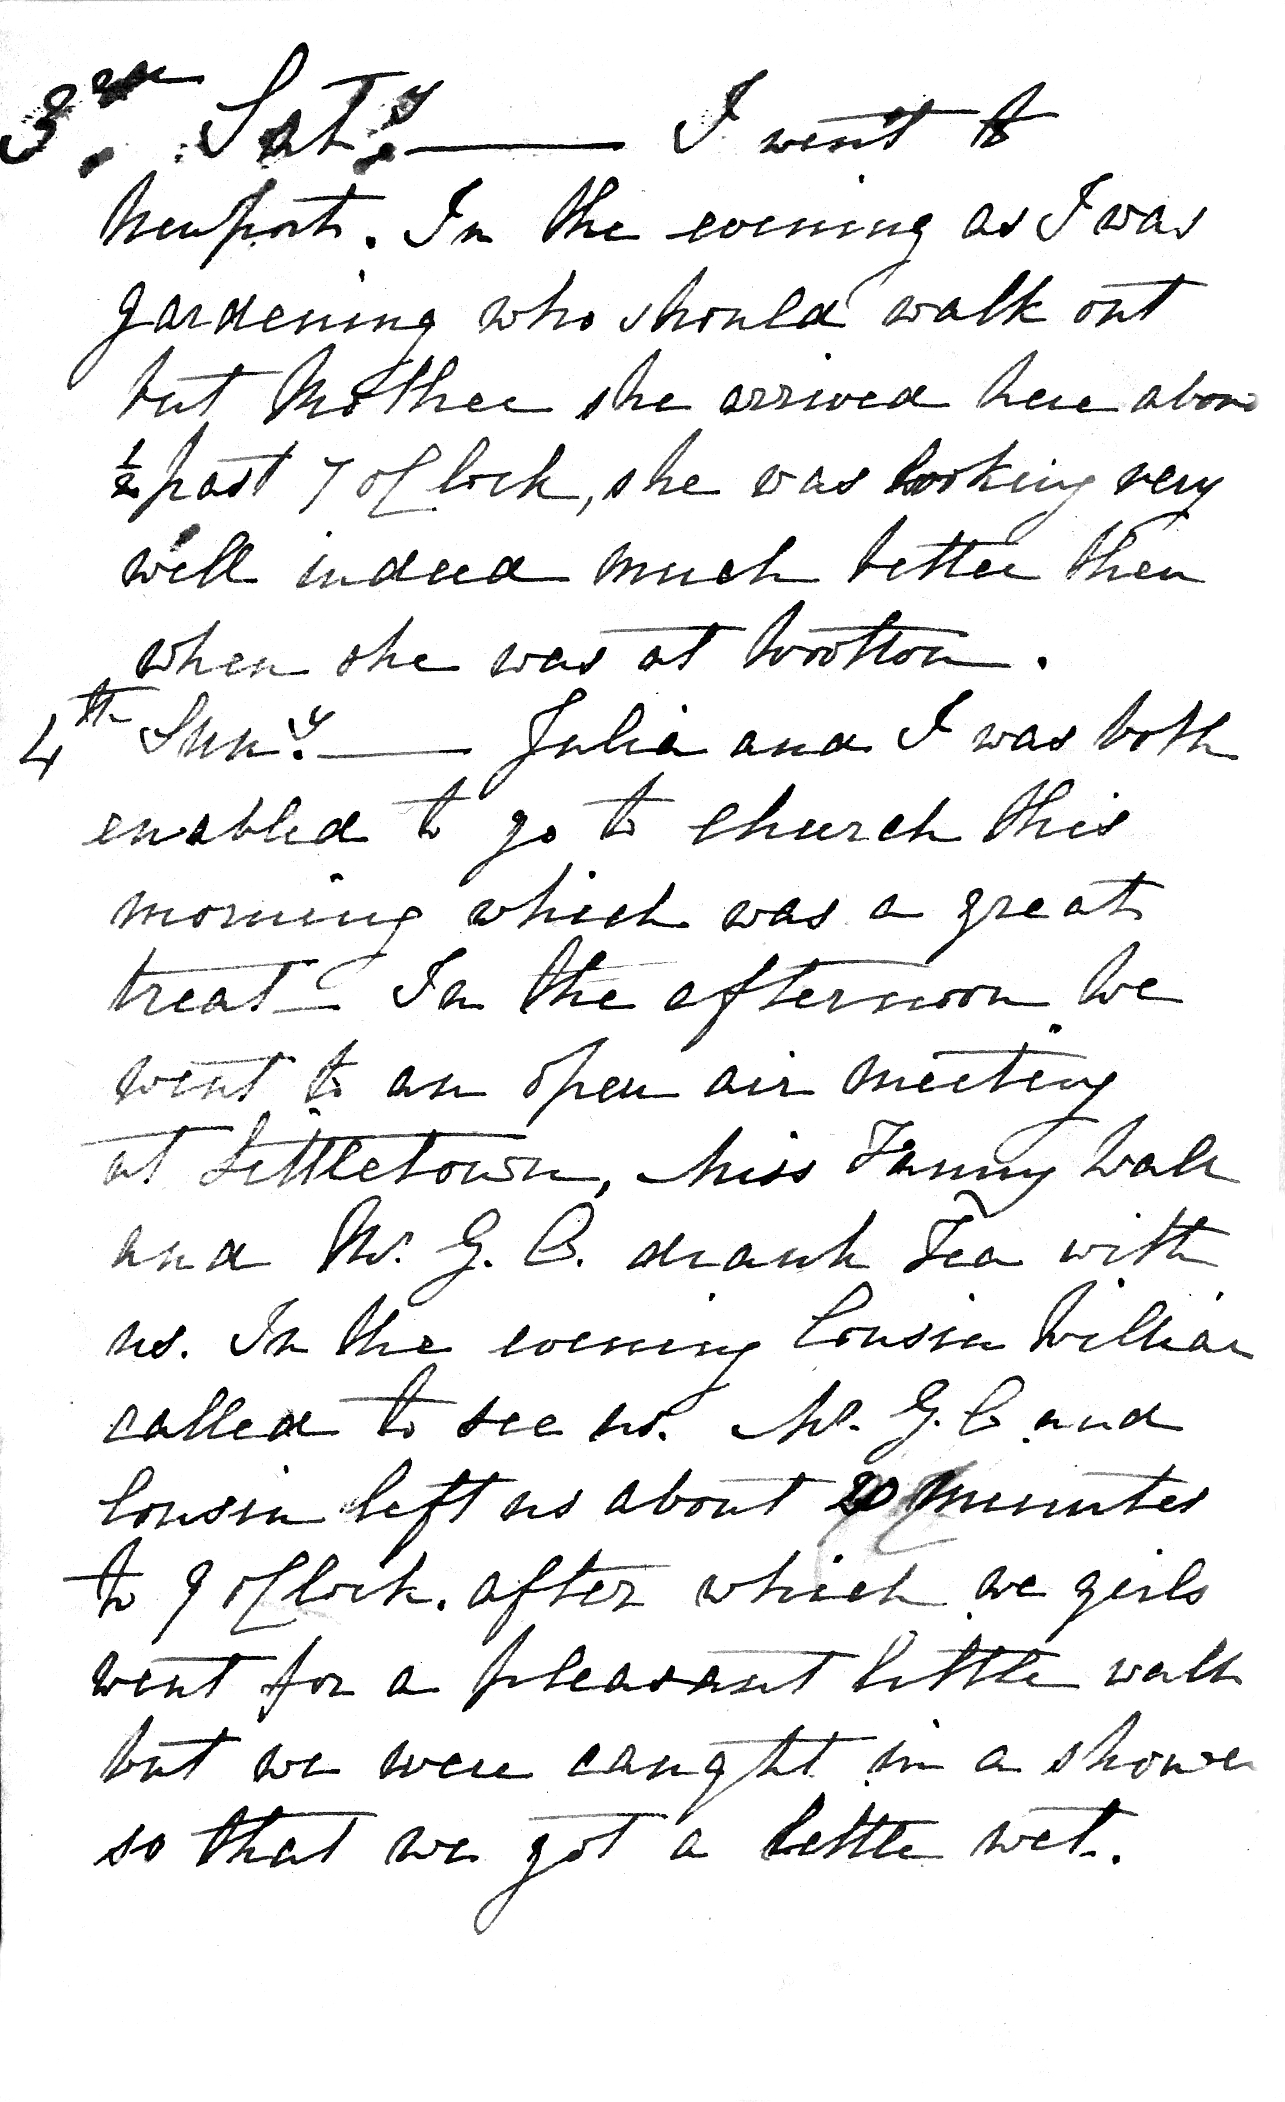 3rd. Saty. — I went to
Newport. In the evening as I was
gardening who should walk out
but Mother she arrived here abou
½ past 7 o'Clock, she was looking very
well indeed much better then
when she was at Wootton.
4th Suny. — Julia and I was both
enabled to go to church this
morning which was a great
treat — In the afternoon we
went to an open air meeting
at Littletown, Miss Fanny Wale
and Mr. G. C. drank Tea with
us. In the evening Cousin Willian
called to see us. Mr. G. C. and
Cousin left us about 20 minutes
to 9 o'Clock. after which we girls
went for a pleasant little walk
but we were caught in a shower
so that we got a little wet.